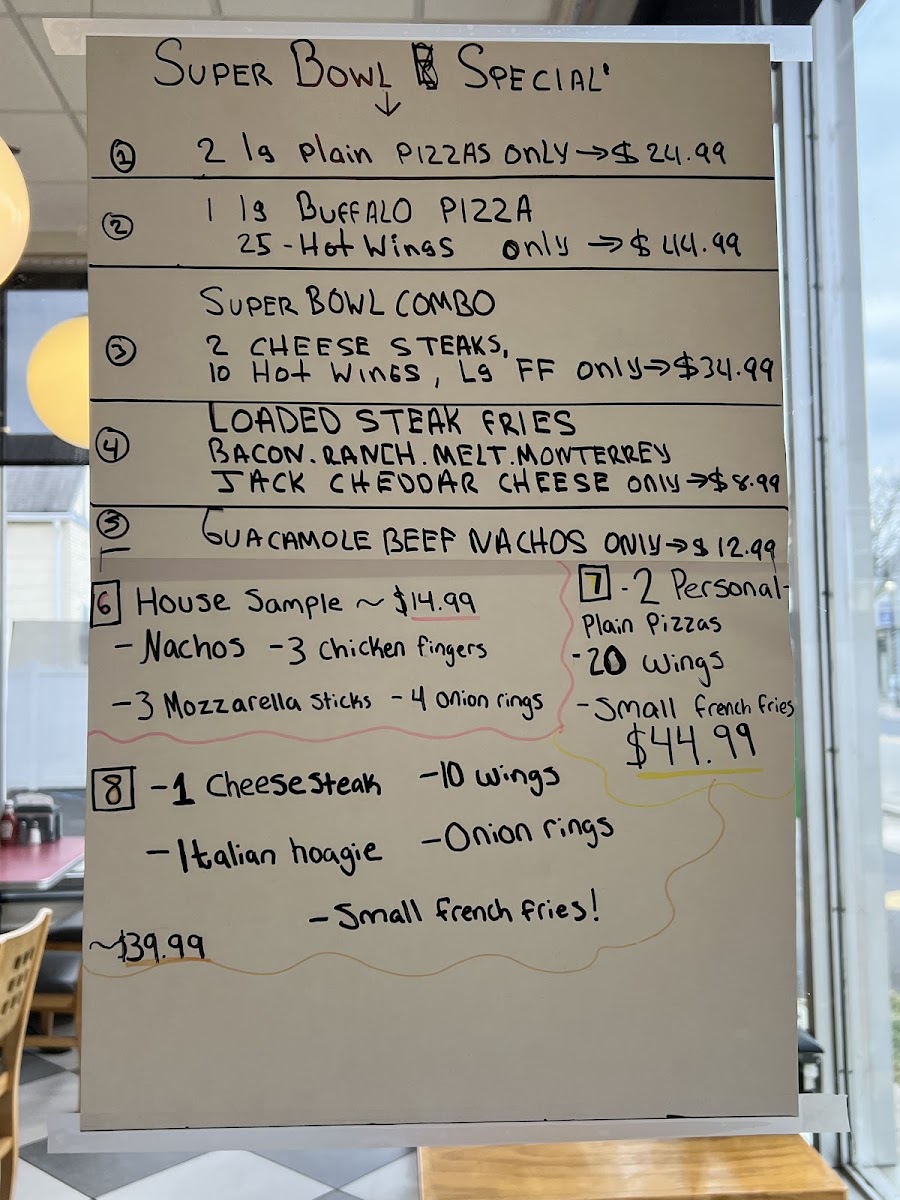 SUPER BOWL SPECIAL
① 2 lg Plain PIZZAS ONLY → $24.99
② 1 lg BUFFALO PIZZA
25 - Hot Wings only → $44.99
SUPER BOWL COMBO
③ 2 CHEESE STEAKS,
10 HOT WINGS, Lg FF only → $34.99
LOADED STEAK FRIES
④ BACON. RANCH. MELT. MONTERREY
JACK CHEDDAR CHEESE only → $8.99
⑤ GUACAMOLE BEEF NACHOS ONLY → $12.99
6 House Sample ~ $14.99
- Nachos - 3 Chicken fingers
- 3 Mozzarella Sticks - 4 Onion rings
7 - 2 Personal-
Plain Pizzas
- 20 Wings
- Small french fries
$44.99
8 - 1 Cheesesteak - 10 wings
- Italian hoagie - Onion rings
- Small french fries!
~ $39.99